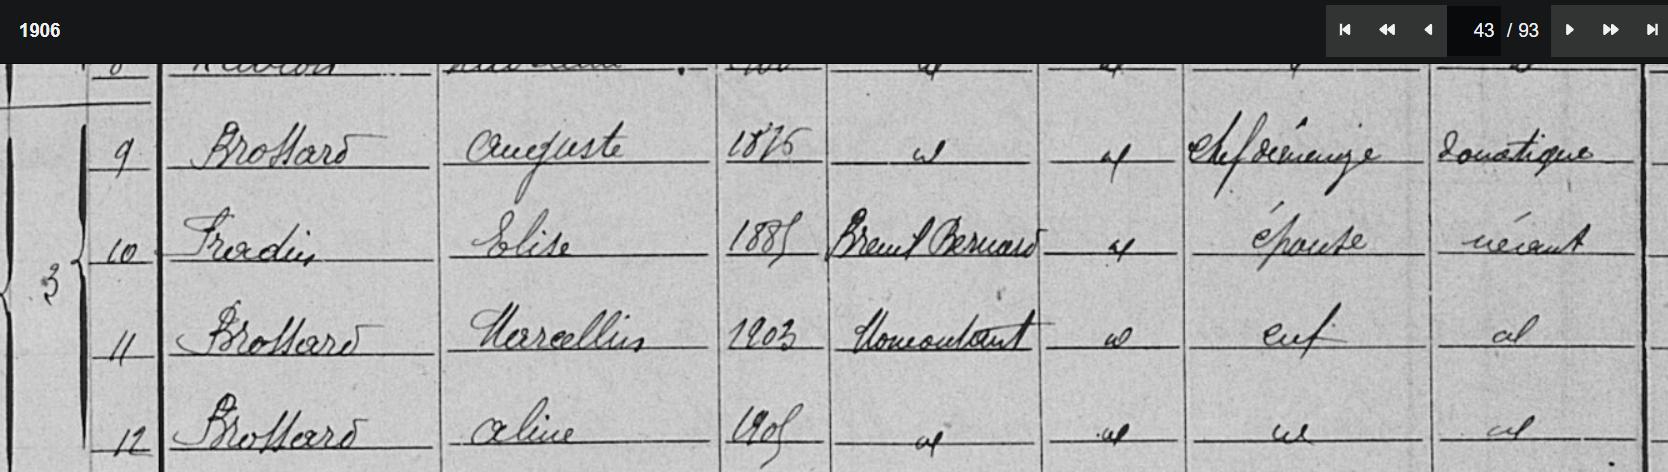 1906 43 / 93
9 Brossard Auguste 1876 id id chef de ménage domestique
10 Fradin Elise 1885 Breuil Bernard id épouse néant
3
11 Brossard Marcellin 1903 Moncoutant id enf id
12 Brossard Aline 1905 id id id id